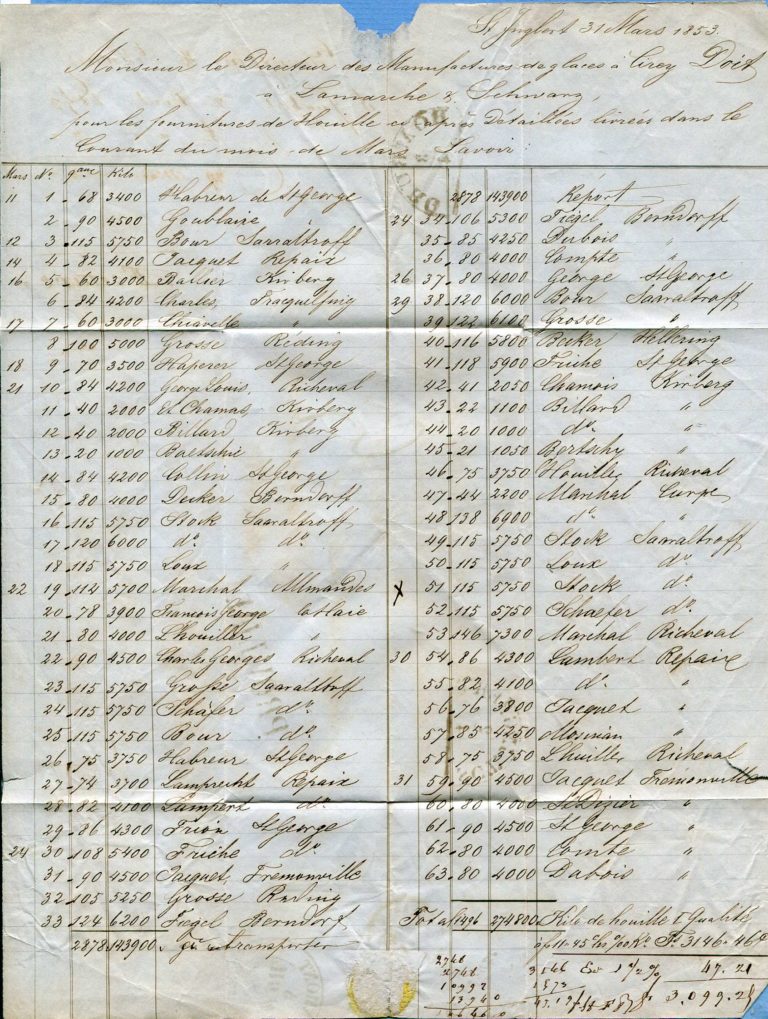 St Ingbert 31 Mars 1853.
Monsieur le Directeur des Manufactures de glaces à Cirey Doit
à Lamarche & Schwarz,
pour les fournitures de Houille ci après Détaillées livrées dans le
Courant du mois de Mars Savoir:
Mars No. qaux Kilo
11 1 - 68 3400 Habreur de St George
2 - 90 4500 Goublaire "
12 3 - 115 5750 Bour Sarraltroff
14 4 - 82 4100 Jacquet Repaix
16 5 - 60 3000 Bailier Kirberg
6 - 84 4200 Charles,
17 7 - 60 3000 Chiavelle "
8 100 5000 Grosse Reding
18 9 - 70 3500 Haperer St George
21 10 - 84 4200 George Louis, Richeval
11 - 40 2000 Et Chamas Kirberg
12 - 40 2000 Billard Kirberg
13 - 20 1000 Baetschie "
14 - 84 4200 Collin St George
15 - 80 4000 Decker Berndorff
16 - 115 5750 Stock Saaraltroff
17 - 120 6000 do. do.
18 - 115 5750 Loux "
22 19 - 114 5700 Marchal Allmandes
20 - 78 3900 Francois George
21 - 80 4000 Lhouiller "
22 - 90 4500 Charles Georges Richeval
23 - 115 5750 Grosse Saaraltroff
24 - 115 5750 Schäfer do.
25 - 115 5750 Bour do.
26 - 75 3750 Habreur St George
27 - 74 3700 Lamprecht Repaix
28 - 82 4100 Lampert do.
29 - 86 4300 Frion St George
24 30 - 108 5400 Friche do.
31 - 90 4500 Jacquet Fremonville
32 - 105 5250 Grosse Reding
33 - 124 6200 Fiegel Berndorf
2878 143900 à transporter
2878 143900 Report
24 34 - 106 5300 Fiegel Berndorff
35 - 85 4250 Dubois "
36 - 80 4000 Compte "
26 37 - 80 4000 George St George
29 38 - 120 6000 Bour Saaraltroff
39 - 122 6100 Grosse "
40 - 116 5800 Becker Hellering
41 - 118 5900 Friche St George
42 - 41 2050 Chamois Kirberg
43 - 22 1100 Billard "
44 - 20 1000 do. "
45 - 21 1050 Bertschy "
46 - 75 3750 Houiller Richeval
47 - 44 2200 Marchal
48 138 6900 do. "
49 - 115 5750 Stock Saaraltroff
50 - 115 5750 Loux do.
X 51 115 5750 Stock do.
52 - 115 5750 Schaefer do.
53 - 146 7300 Marchal Richeval
30 54 - 86 4300 Lambert Repaix
55 - 82 4100 do. "
56 - 76 3800 Jacquet "
57 - 85 4250 Mosiman "
58 - 75 3750 Lhuiller Richeval
31 59 - 90 4500 Jacquet Fremonville
60 - 80 4000 St Dizier "
61 - 90 4500 St George "
62 - 80 4000 Comte "
63 - 80 4000 Dubois "
Total 5496 274800 Kilo de houille 1 Qualité
à 11-45 les %00 Ko. Fr. 3146 - 46
2748
2748
10992
13740
3146 Esc 1 1/2 % 47.21
1573
47.19
3.099.25